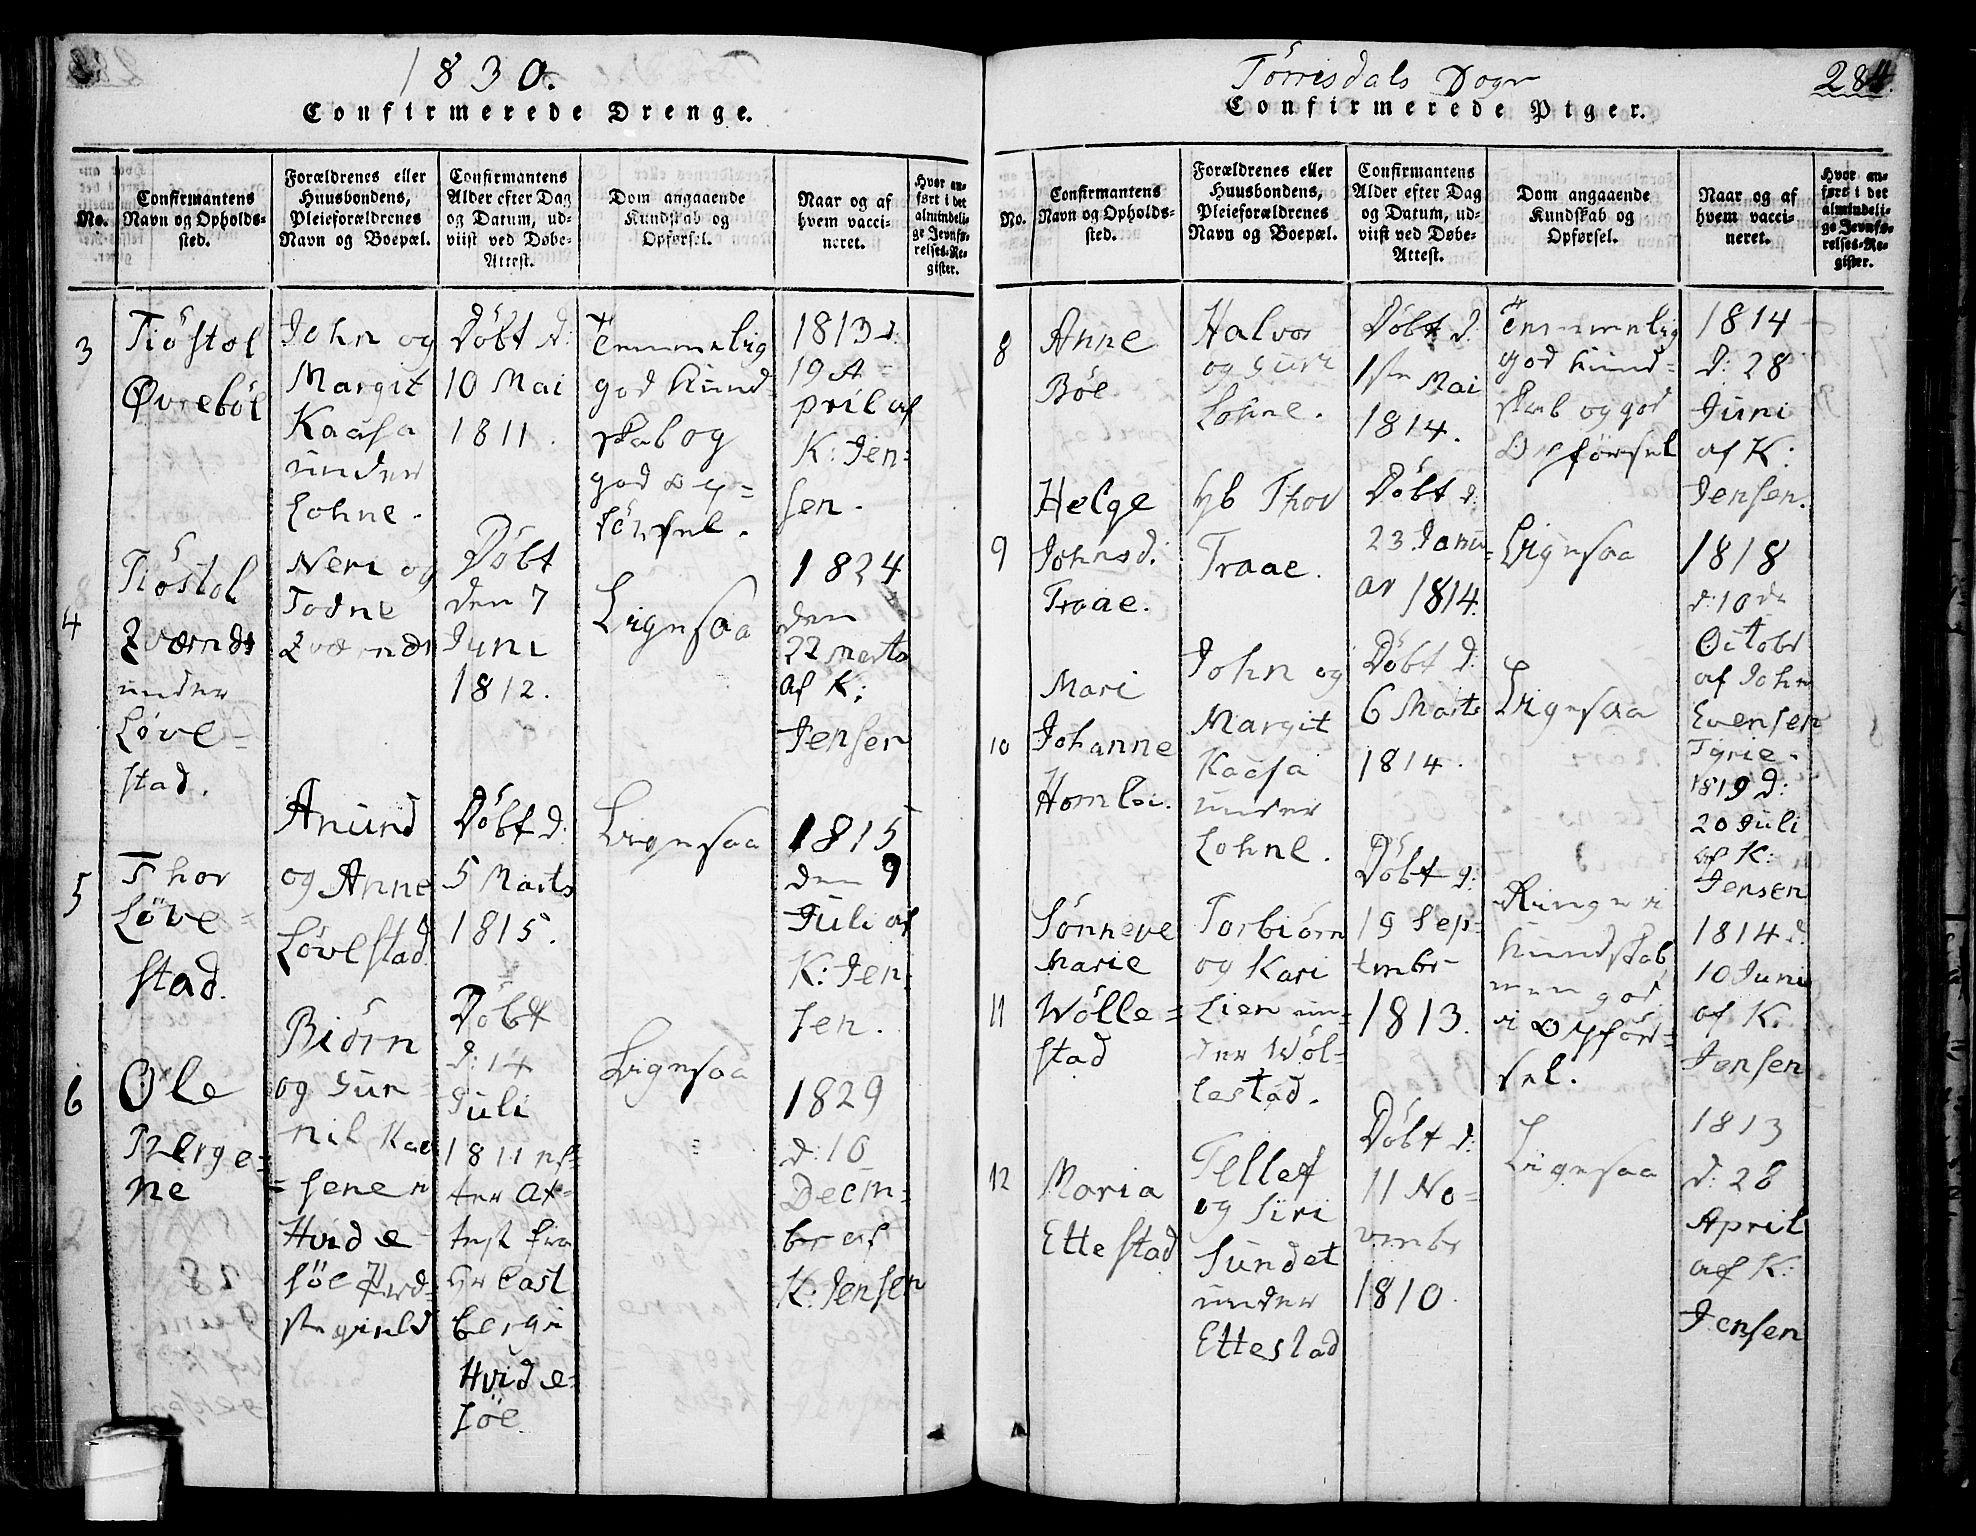 1830.
Confirmerede Drenge.
No.
Confirmantens
Navn og Opholds-
sted.
Forældrenes eller
Huusbondens,
Pleieforældrenes
Navn og Boepæl.
Confirmantens
Alder efter Dag
og Datum, ud-
viist ved Døbe-
Attest.
Dom angaaende
Kundskab og
Opførsel.
Naar og af
hvem vacci-
neret.
Hvor an-
ført i det
almindeli-
ge Jevnfø-
relses-Re-
gister.
3
Tiöstol
Øvreböl
John og
Margit
Kaasa
under
Lohne.
Döbt d:
10 Mai
1811.
Temmelig
god Kund-
skab og
god Op-
förhsel.
1813 d:
19 A-
pril af
K: Jen-
sen.
4
Tiöstol
Qværndt
under
Löve-
stad.
Neri og
Todne
Qværndt
Döbt
den 7
Juni
1812.
Ligesaa
1824
den
22 Marts
af K:
Jensen
5
Thor
Löve-
stad.
Anund
og Anne
Lövestad
Döbt d:
5 Marts
1815.
Ligesaa
1815
den 9
Juli af
K: Jen-
sen.
6
Ole
Berge-
nie
Biörn
og Gun-
nil Kaa-
senen
Hvide-
söe Præ-
stegield
Döbt
d: 14
Juli
1811 ef-
ter At-
test fra
Hr Cast
bergi
Hvide-
söe
Ligesaa
1829
d: 10
Decem-
ber af
K: Jensen
Törrisdals Sogn
284.
Confirmerede Piger.
No.
Confirmantens
Navn og Opholds-
sted.
Forældrenes eller
Huusbondens,
Pleieforældrenes
Navn og Boepæl.
Confirmantens
Alder efter Dag
og Datum, ud-
viist ved Døbe-
Attest.
Dom angaaende
Kundskab og
Opførsel.
Naar og af
hvem vacci-
neret.
Hvor an-
ført i det
almindeli-
ge Jevnfø-
relses-Re-
gister.
8
Anne
Böe
Halvor
og Guri
Lohne.
Döbt d:
1ste Mai
1814.
Temmelig
god Kund-
skab og god
Opförsel
1814
d: 28
Juni
af K:
Jensen.
9
Helge
Johnsd.
Traae.
Thor
Traae.
Döbt d:
23 Janu-
ar 1814.
Ligesaa
1818
d: 10de
Octobr
af John
Evensen
Tyrie.
10
Mari
Johanne
Homlei.
John og
Margit
Kaasa
under
Lohne.
Döbt d:
6 Marts
1814.
Ligesaa
1819 d:
20 Juli
af K:
Jensen
11
Sönneve
Marie
Wölle-
stad
Torbiörn
og Kari
Lien un-
der Wöl-
lestad.
Döbt d:
19 Sep-
tembr
1813.
Ringe i
Kundskab
men god
i Opför-
sel.
1814 d.
10 Juni
af K.
Jensen
12
Maria
Ettestad
Tellef
og Siri
Sundet
under
Ettestad
Döbt d:
11 No-
vembr
1810.
Ligesaa
1813
d: 28
April
af K:
Jensen